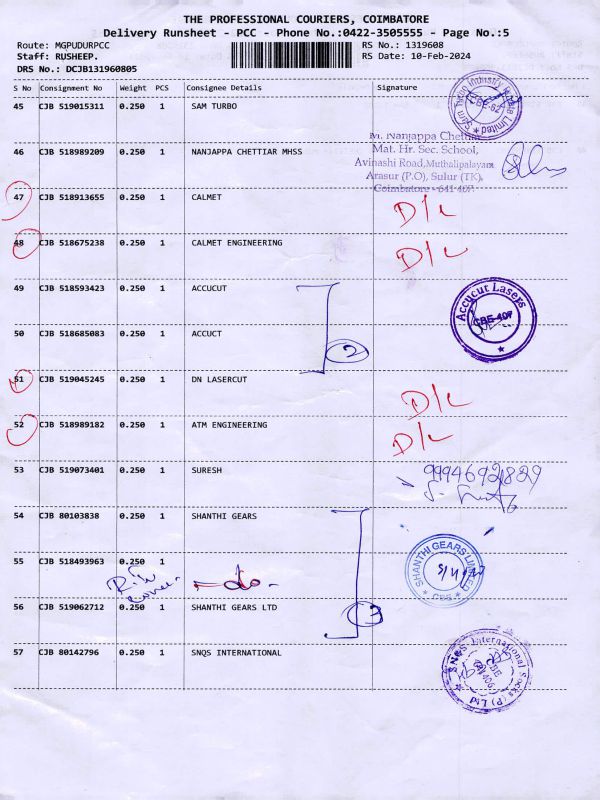 THE PROFESSIONAL COURIERS, COIMBATORE
Delivery Runsheet - PCC - Phone No.:0422-3505555 - Page No.:5
Route: MGPUDURPCC RS No.: 1319608
Staff: RUSHEEP. RS Date: 10-Feb-2024
DRS No.: DCJB131960805
S No Consignment No Weight PCS Consignee Details Signature
45 CJB 519015311 0.250 1 SAM TURBO
Sam Turbo Industry Private Limited
CBE-62
46 CJB 518989209 0.250 1 NANJAPPA CHETTIAR MHSS
M. Nanjappa Chettiar
Mat. Hr. Sec. School,
Avinashi Road, Muthalipalayam
Arasur (P.O), Sulur (TK),
Coimbatore - 641 407
47 CJB 518913655 0.250 1 CALMET D/L
48 CJB 518675238 0.250 1 CALMET ENGINEERING D/L
49 CJB 518593423 0.250 1 ACCUCUT
Accucut Lasers
CBE-407
50 CJB 518685083 0.250 1 ACCUCT
2
51 CJB 519045245 0.250 1 DN LASERCUT D/L
52 CJB 518989182 0.250 1 ATM ENGINEERING D/L
53 CJB 519073401 0.250 1 SURESH
54 CJB 80103838 0.250 1 SHANTHI GEARS
SHANTHI GEARS LIMITED
CBE
55 CJB 518493963 0.250 1 -do-
56 CJB 519062712 0.250 1 SHANTHI GEARS LTD
3
57 CJB 80142796 0.250 1 SNQS INTERNATIONAL
SNQS International Socks (P) Ltd
CBE